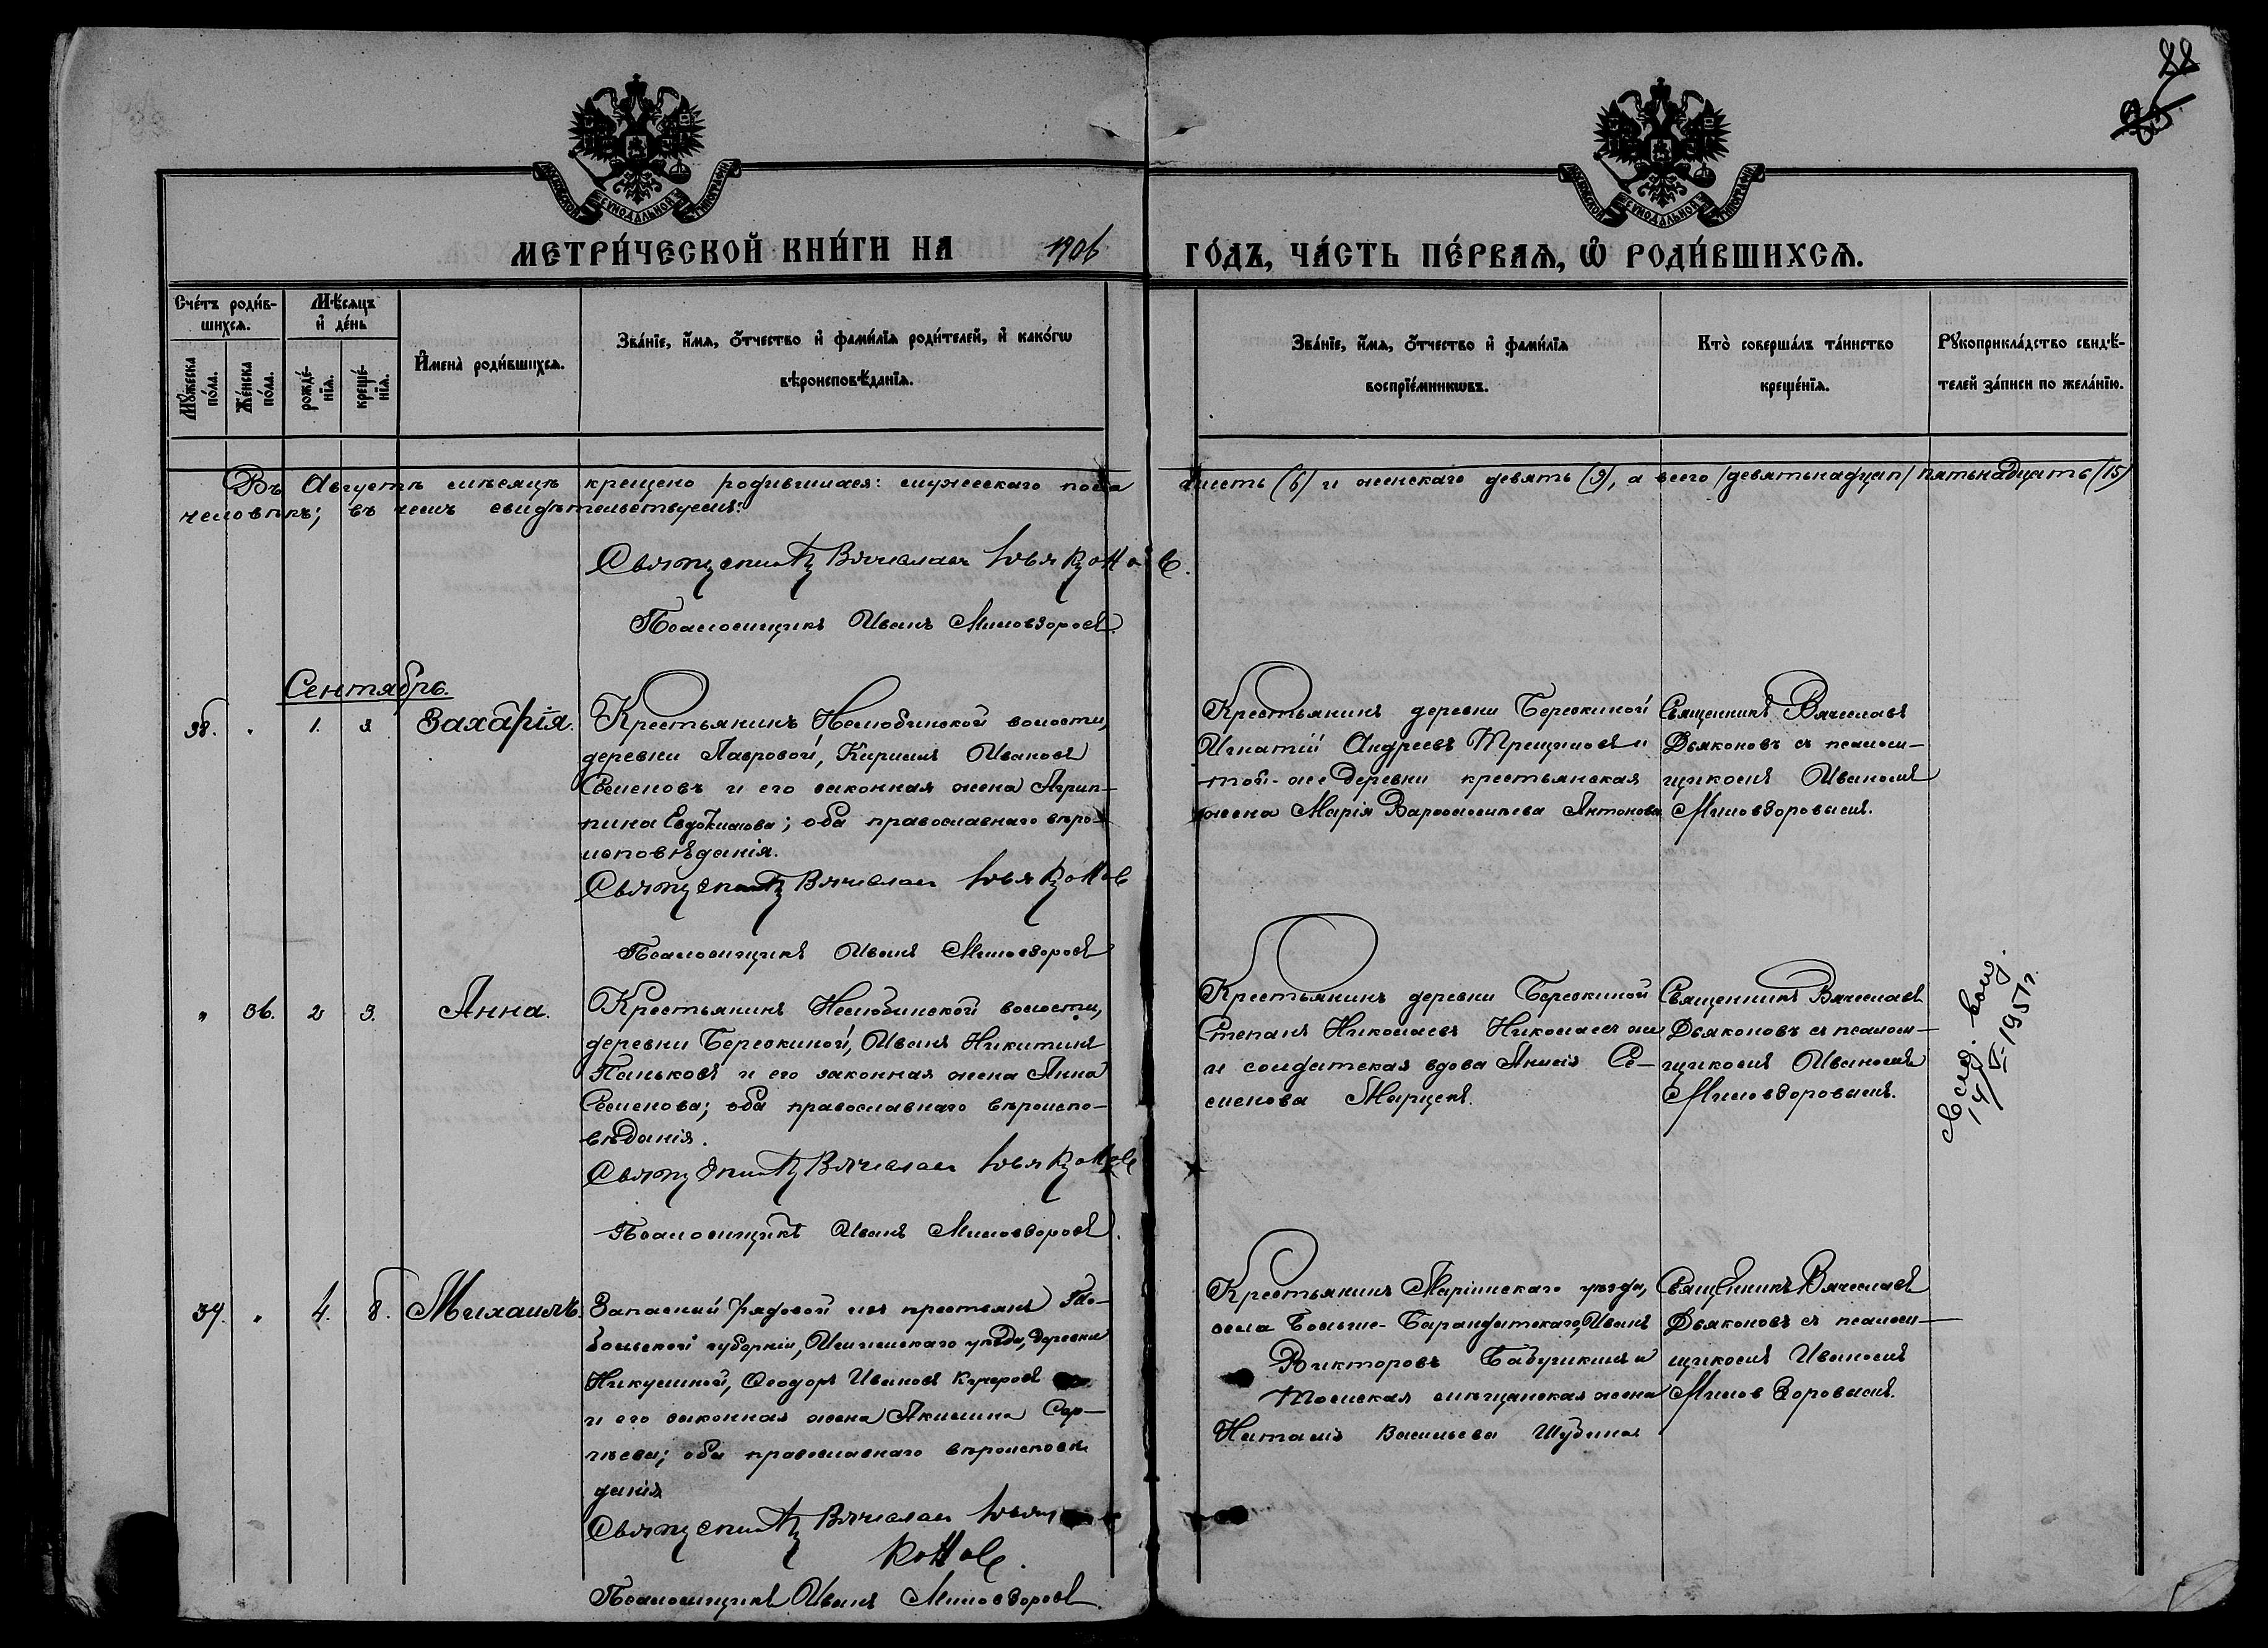 22
25
МОСКОВСКОЙ СѴНОДАЛЬНОЙ ТИПОГРАФІИ
МОСКОВСКОЙ СѴНОДАЛЬНОЙ ТИПОГРАФІИ
МЕТРИ́ЧЕСКОЙ КНИ́ГИ НА 1906 ГО́ДЪ, ЧА́СТЬ ПЕ́РВАѦ, Ѽ РОДИ́ВШИХСѦ.
Сче́тъ роди́в-
шихсѧ.
Мꙋ́жеска по́ла.
Же́нска по́ла.
Мѣ́сѧцъ
и҆ де́нь
рожде́-
нїѧ.
креще́-
нїѧ.
И҆мена̀ роди́вшихсѧ.
Зва́нїе, и҆́мѧ, ѻ҆́тчество и҆ фами́лїѧ роди́телей, и҆ како́гѡ
вѣроисповѣ́данїѧ.
Зва́нїе, и҆́мѧ, ѻ҆́тчество и҆ фами́лїѧ
воспрїе́мникѡвъ.
Кто̀ соверша́лъ та́инство
креще́нїѧ.
Рꙋкоприкла́дство свидѣ́-
телей за́писи по жела́нїю.
Въ Августѣ мѣсяцѣ крещено родившихся: мужескаго пола шесть (6) и женскаго девять (9), а всего (девятьнадцат) пятьнадцать (15)
человѣкъ; въ чемъ свидѣтельствуемъ:
Священникъ Вячеславъ Дьяконовъ.
Псаломщикъ Иванъ Миловзоровъ.
Сентябрь.
38. " 1. 3 Захарія.
Крестьянинъ Нелюбинской волости,
деревни Лавровой, Кириллъ Ивановъ
Семеновъ и его законная жена Агрип-
пина Евдокимова; оба православнаго вѣро-
исповѣданія.
Священникъ Вячеславъ Дьяконовъ
Псаломщикъ Иванъ Миловзоровъ
Крестьянинъ деревни Берёзкиной
Игнатій Андреевъ Трещиловъ и
той-же деревни крестьянская
жена Марія Варѳоломѣева Антонова
Священникъ Вячеславъ
Дьяконовъ съ псалом-
щикомъ Иваномъ
Миловзоровымъ.
" 36. 2 3. Анна.
Крестьянинъ Нелюбинской волости,
деревни Березкиной, Иванъ Никитинъ
Паньковъ и его законная жена Анна
Семенова; оба православнаго вѣроиспо-
вѣданія.
Священникъ Вячеславъ Дьяконовъ
Псаломщикъ Иванъ Миловзоровъ.
Крестьянинъ деревни Березкиной
Степанъ Николаевъ Николаевъ же
и солдатская вдова Анисія Се-
менова
Священникъ Вячеславъ
Дьяконовъ съ псалом-
щикомъ Иваномъ
Миловзоровымъ.
1951 г.
39. " 4. 8. Михаилъ.
Запасный рядовой изъ крестьянъ То-
больской губерніи, Ишимскаго уѣзда, деревни
Ѳеодоръ Ивановъ Кучеровъ
и его законная жена Акилина Сер-
гѣева; оба православнаго вѣроисповѣ
данія
Священникъ Вячеславъ Дья
коновъ.
Псаломщикъ Иванъ Миловзоровъ.
Крестьянинъ Маріинскаго уѣзда,
села Больше-Барандатскаго, Иванъ
Викторовъ Бабушкинъ и
Томская мѣщанская жена
Наталія Васильева Шубина
Священникъ Вячеславъ
Дьяконовъ съ псалом-
щикомъ Иваномъ
Миловзоровымъ.